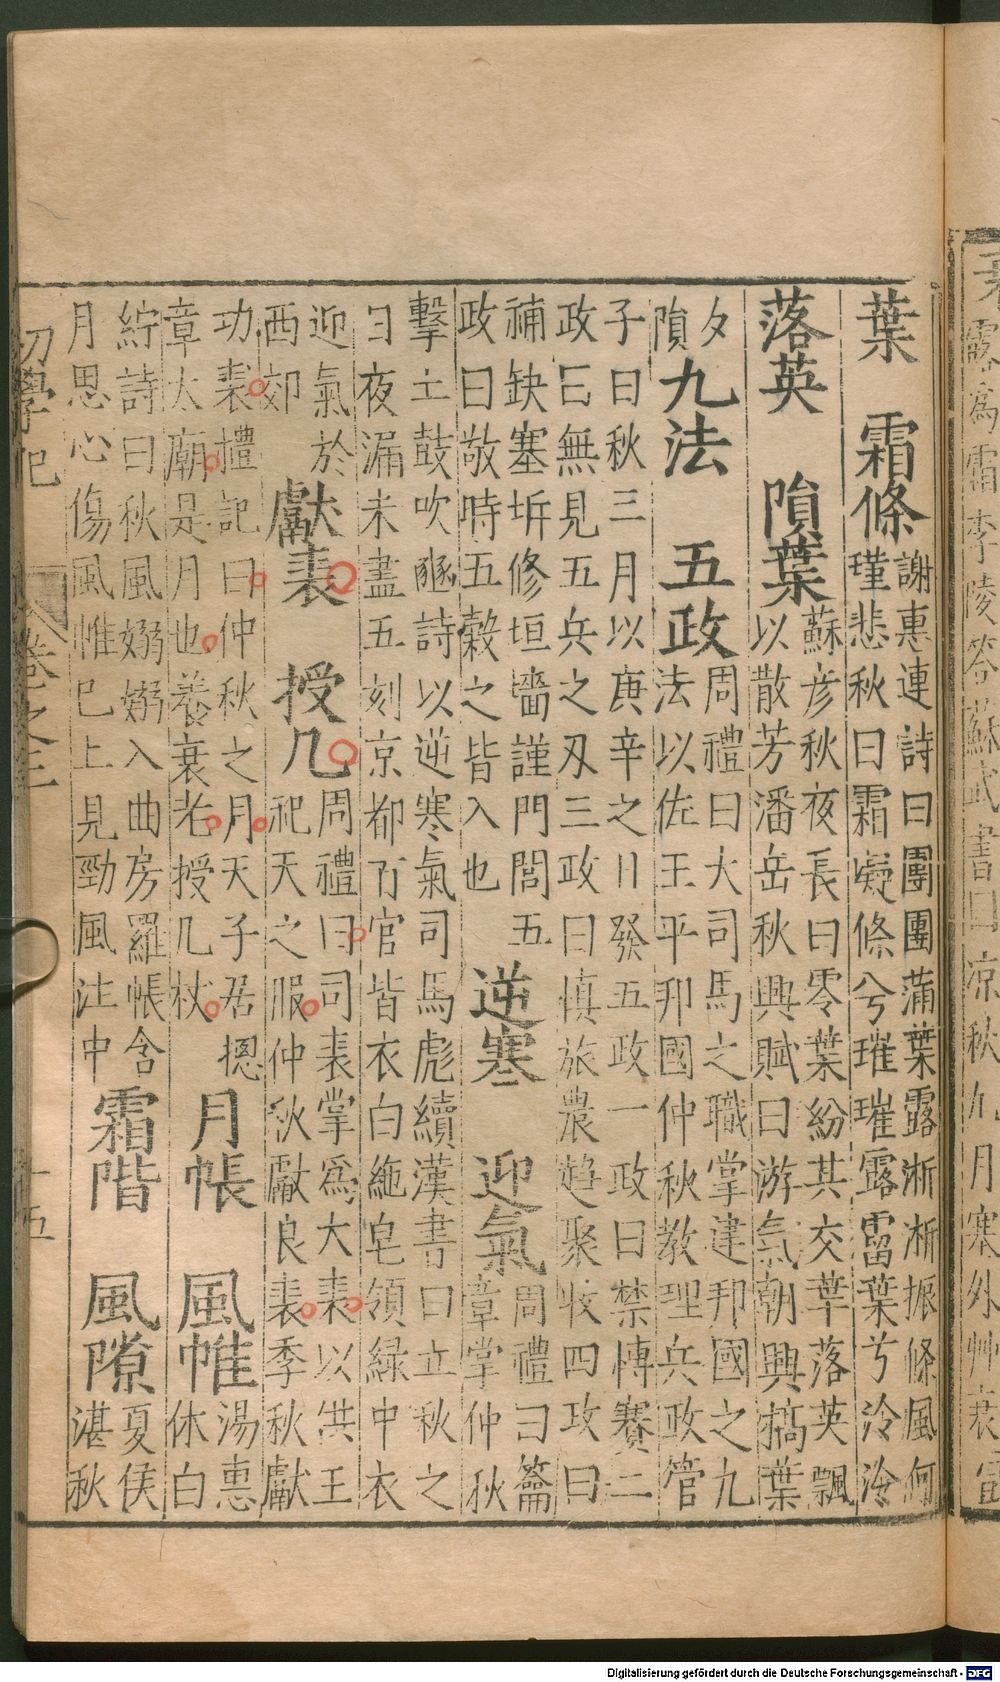 露爲霜李陵答蘇武書曰凉秋九月塞外艸衰
葉 霜條
謝惠連詩曰團團滿葉露淅淅振條風何
瑾悲秋曰霜凝條兮璀璀露霑葉兮泠泠
落英 隕葉
蘇彦秋夜長曰零葉紛其交萃落英飄
以散芳潘岳秋興賦曰游氣朝興槁葉
夕
隕
九法 五政
周禮曰大司馬之職掌建邦國之九
法以佐王平邦國仲秋教理兵政管
子曰秋三月以庚辛之日發五政一政曰禁博賽二
政曰無見五兵之刃三政曰慎旅農趨聚收四政曰
補缺塞坼修垣墻謹門閭五
政曰敬時五穀之皆入也
逆寒 迎氣
周禮曰籥
章掌仲秋
擊土鼓吹豳詩以逆寒氣司馬彪續漢書曰立秋之
日夜漏未盡五刻京都百官皆衣白絁皂領緑中衣
迎氣於
西郊
獻裘 授几
周禮曰司裘掌爲大裘以供王
祀天之服仲秋獻良裘季秋獻
功裘禮記曰仲秋之月天子居摠
章太廟是月也養衰老授几杖
月帳 風帷
湯惠
休白
紵詩曰秋風嫋嫋入曲房羅帳含
月思心傷風帷巳上見勁風注中
霜階 風隙
夏侯
湛秋
初學記 卷之三 十五
Digitalisierung gefördert durch die Deutsche Forschungsgemeinschaft - DFG